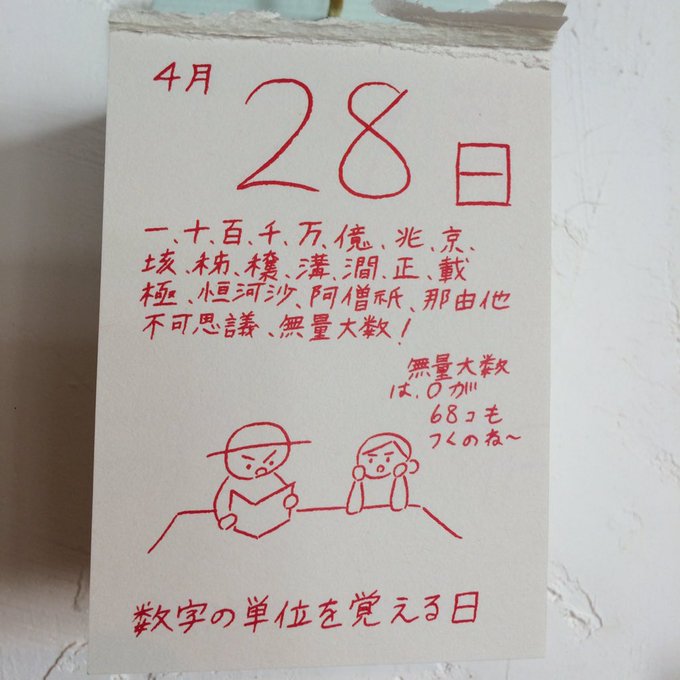 4月
28日
一、十、百、千、万、億、兆、京、
垓、秭、穣、溝、澗、正、載
極、恒河沙、阿僧祇、那由他
不可思議、無量大数!
無量大数
は、0が
68コも
つくのね〜
数字の単位を覚える日